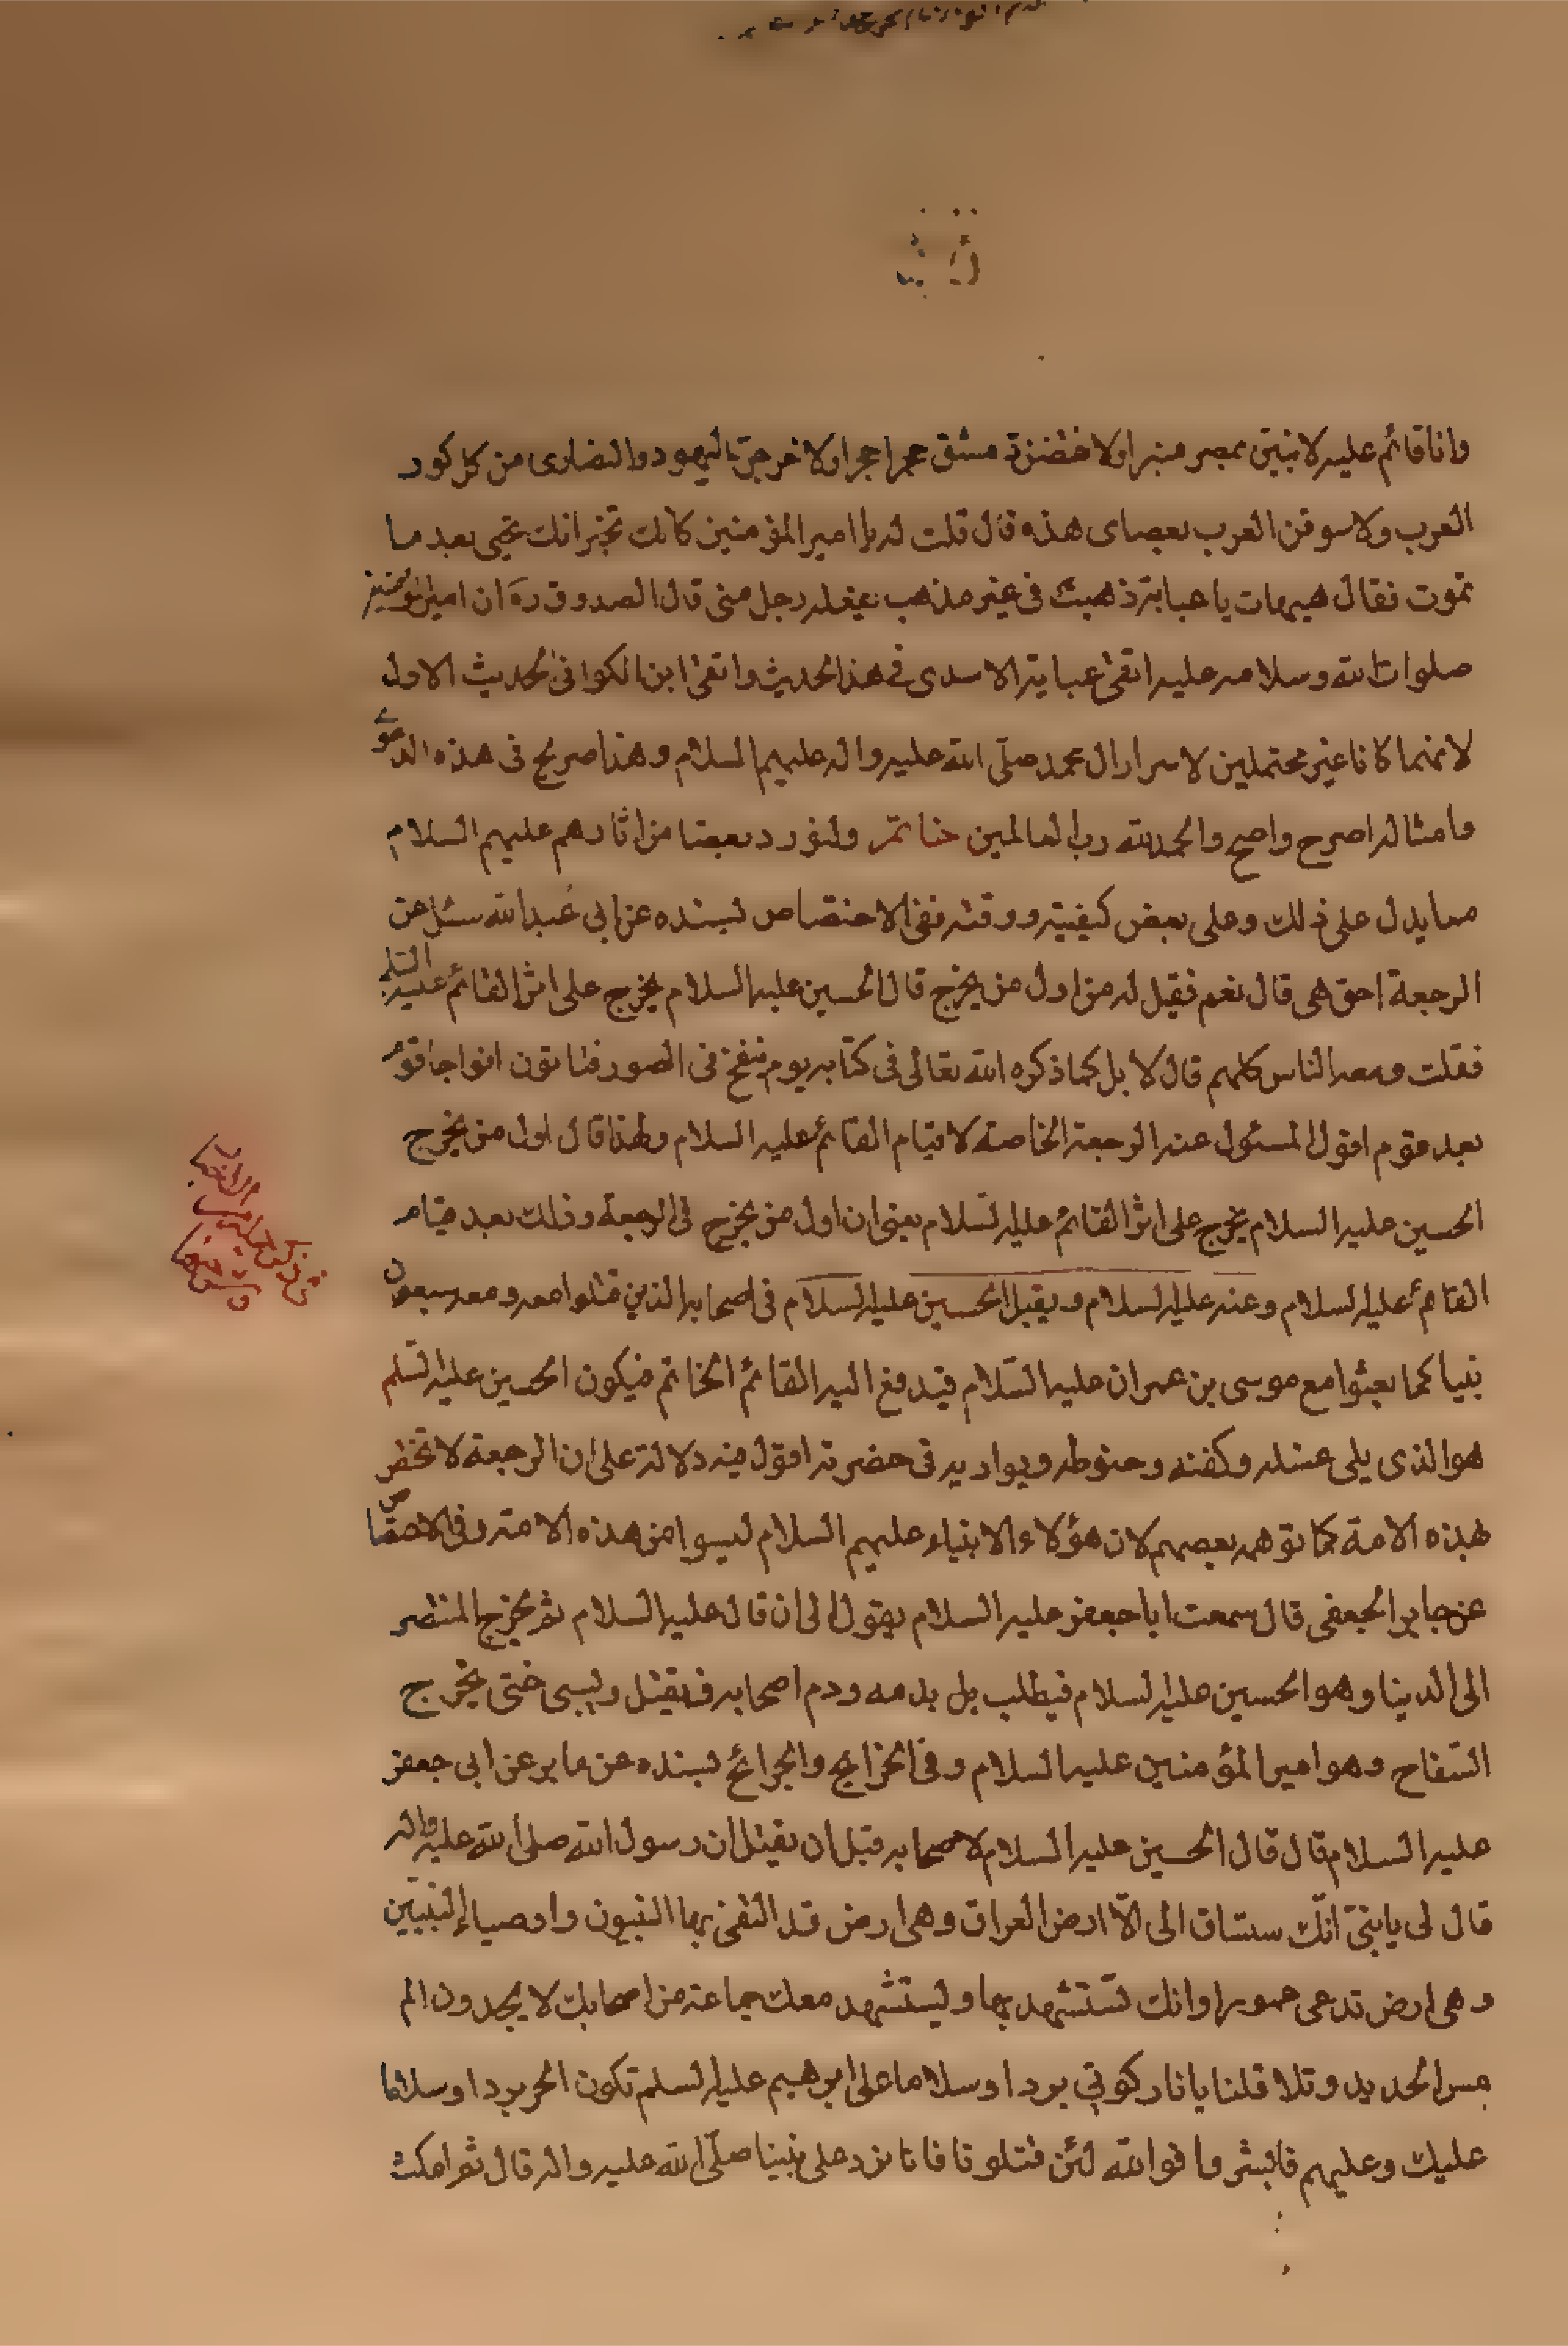 وانا قائم عليه لابنين بمصر منبرا ولاخضنن دمشق حجرا حجرا ولاخرجن اليهود والنصارى من كل كور
العرب ولاسوقن العرب بعصاى هذه قال قلت له يا امير المؤمنين كانك تخبر انك تحيى بعد ما
تموت فقال هيهات يا عباية ذهبت فى غير مذهب يفعله رجل منى قال الصدوق ره ان امير المؤمنين
صلوات الله وسلامه عليه اتقى عباية الاسدى فى هذا الحديث واتقى ابن الكوا فى الحديث الاول
لانهما كانا غير محتملين لاسرار ال محمد صلى الله عليه واله عليهم السلام وهذا صريح فى هذه الدعوى
وامثاله اصرح واضح والحمد لله رب العالمين خاتمه ولنورد بعضا من اثارهم عليهم السلام
مما يدل على ذلك وعلى بعض كيفيته ووقته ففى الاختصاص بسنده عن ابى عبدالله سئل عن
الرجعة احق هى قال نعم فقيل له من اول من يخرج قال الحسين عليه السلام يخرج على اثر القائم عليه السلم
فقلت ومعه الناس كلهم قال لا بل كما ذكره الله تعالى فى كتابه يوم ينفخ فى الصور فتاتون افواجا قوم
بعد قوم اقول المسئول عنه الرجعة الخاصة لا قيام القائم عليه السلام ولهذا قال اول من يخرج
الحسين عليه السلام يخرج على اثر القائم عليه السلام يعنى ان اول من يخرج فى الرجعة وذلك بعد قيام
القائم عليه السلام وعنه عليه السلام ويقبل الحسين عليه السلام فى اصحابه الذين قتلوا معه ومعه سبعون
نبيا كما بعثوا مع موسى بن عمران عليه السلام فيدفع اليه القائم الخاتم فيكون الحسين عليه السلم
هو الذى يلى غسله وكفنه وحنوطه ويواريه فى حضرته اقول فيه دلالة على ان الرجعة لا تختص
بهذه الامة كما توهمه بعضهم لان هؤلاء الانبياء عليهم السلام ليسوا من هذه الامة وفى الاختصاص
عن جابر الجعفى قال سمعت ابا جعفر عليه السلام يقول الى ان قال عليه السلام ثم يخرج المنتصر
الى الدنيا وهو الحسين عليه السلام فيطلب بل بدمه ودم اصحابه فيقتل ويسبى حتى يخرج
السفاح وهو امير المؤمنين عليه السلام وفى الخرائج والجرائح بسنده عن جابر عن ابى جعفر
عليه السلام قال قال الحسين عليه السلام لاصحابه قبل ان يقتل ان رسول الله صلى الله عليه واله
قال لى يا بنى انك ستساق الى الا ارض العراق وهى ارض قد التقى بها النبيون واوصياء النبيين
وهى ارض تدعى عمورا وانك تستشهد بها ويستشهد معك جماعة من اصحابك لا يجدون الم
مس الحديد وتلا قلنا يا نار كونى بردا وسلاما على ابرهيم عليه السلم تكون الحر بردا وسلاما
عليك وعليهم فابشروا فوالله لئن قتلونا فانا نرد على نبينا صلى الله عليه واله قال ثم امكث